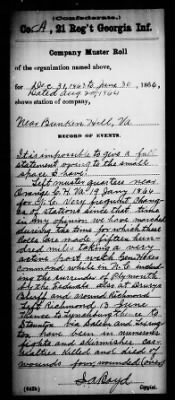 (Confederate.)
Co. A, 21 Reg't Georgia Inf.
Company Muster Roll
of the organization named above,
for Dec 31, 1863 to June 30, 1864,
Dated Aug 20, 1864
shows station of company,
Near Bunker Hill, Va
RECORD OF EVENTS.
It is impossible to give a full
statement owing to the small
space I have.
Left winter quarters near
Orange C. H. 19 Jany 1864
for N. C. Very frequent changes
of stations since that time
in any man we have marched
during the time for which these
Rolls are made fifteen hun-
dred miles taking a very
active part with Gen Hokes
command while in N. C. and
the surrender of Plymouth
by the Federals also at Drurys
Bluff and around Richmond
Left Richmond 13 June
thence to Lynchburg thence to
Staunton via Salem and Lexing-
ton have been in numerous
fights and skirmishes cas-
ualties killed and died of
wounds four, wounded
Copyist.